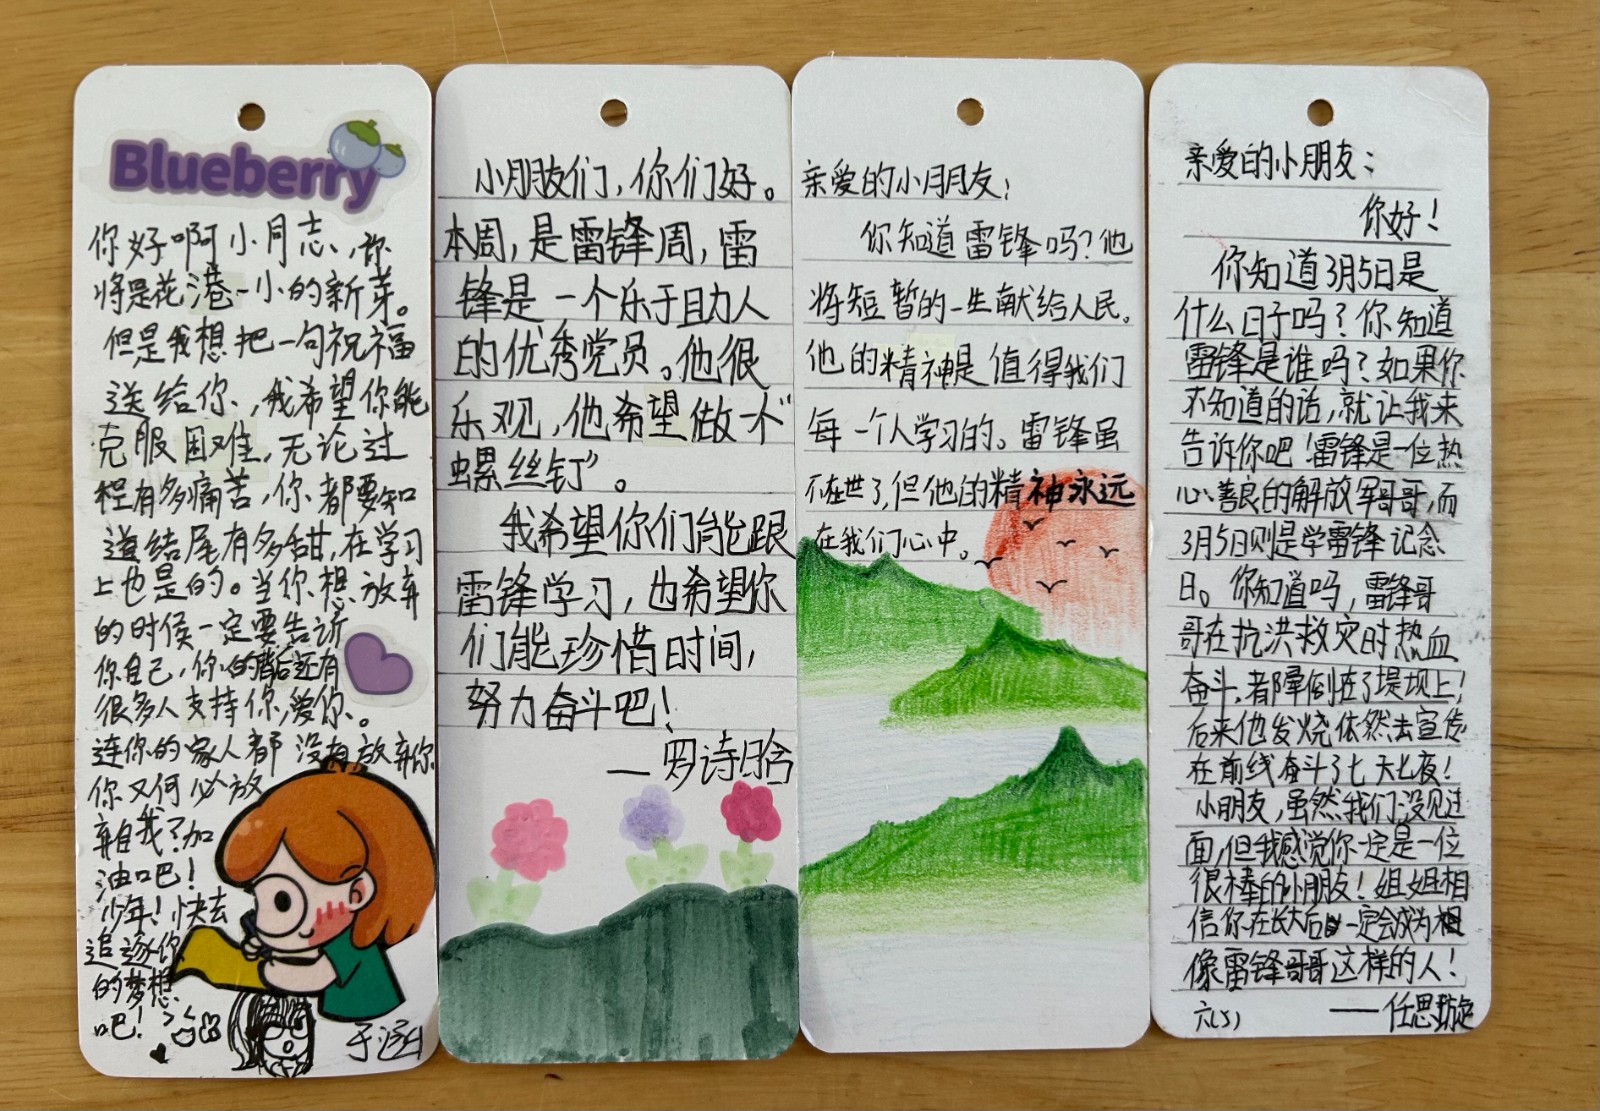 Blueberry
你好啊小同志,你
将是花港一小的新芽。
但是我想把一句祝福
送给你,我希望你能
克服困难,无论过
程有多痛苦,你都要知
道结尾有多甜,在学习
上也是的。当你想放弃
的时候一定要告诉
你自己,你的背后还有
很多人支持你,爱你。
连你的家人都没有放弃你
你又何必放
弃自我?加
油吧!
少年!快去
追逐你
的梦想
吧!
于涵
小朋友们,你们好。
本周,是雷锋周,雷
锋是一个乐于助人
的优秀党员。他很
乐观,他希望做一个“
螺丝钉”。
我希望你们能跟
雷锋学习,也希望你
们能珍惜时间,
努力奋斗吧!
—罗诗晗
亲爱的小朋友:
你知道雷锋吗?他
将短暂的一生献给人民。
他的精神是值得我们
每一个人学习的。雷锋虽
不在世了,但他的精神永远
在我们心中。
亲爱的小朋友:
你好!
你知道3月5日是
什么日子吗?你知道
雷锋是谁吗?如果你
不知道的话,就让我来
告诉你吧!雷锋是一位热
心善良的解放军哥哥,而
3月5日则是学雷锋记念
日。你知道吗,雷锋哥
哥在抗洪救灾时热血
奋斗,都晕倒在了堤坝上!
后来他发烧依然去宣传
在前线奋斗了七天七夜!
小朋友,虽然我们没见过
面,但我感觉你一定是一位
很棒的小朋友!姐姐相
信你在长大后一定会成为
像雷锋哥哥这样的人!
六(5) —任思璇